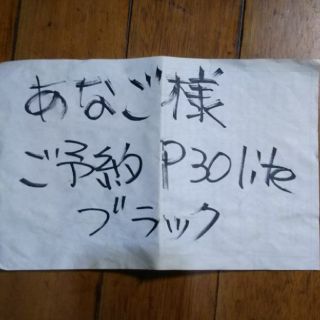 あなご様
ご予約 P30lite
ブラック